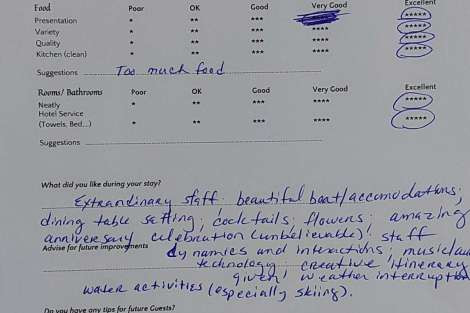 Food Poor OK Good Very Good Excellent
Presentation * ** *** **** *****
Variety * ** *** **** *****
Quality * ** *** **** *****
Kitchen (clean) * ** *** **** *****
Suggestions Too much food
Rooms/ Bathrooms Poor OK Good Very Good Excellent
Neatly * ** *** **** *****
Hotel Service
(Towels, Bed...) * ** *** **** *****
Suggestions
What did you like during your stay?
Extraordinary staff; beautiful boat/accomodations;
dining table setting; cocktails; flowers; amazing
anniversary celebration (unbelievable)! staff
Advise for future improvements dynamics and interactions; music/
technology creative itinerary
given weather interruption
water activities (especially skiing).
Do you have any tips for future Guests?